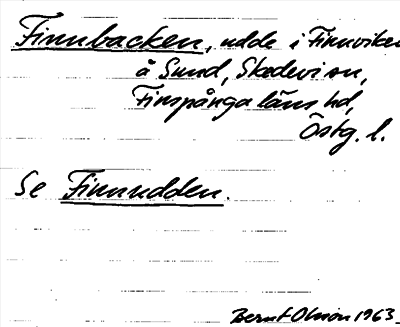 Finnbacken, udde i Finnviken
å Sund, Skedevi sn,
Finspånga läns hd,
Östg. l.
Se Finnudden.
Bernt Olsson 1963